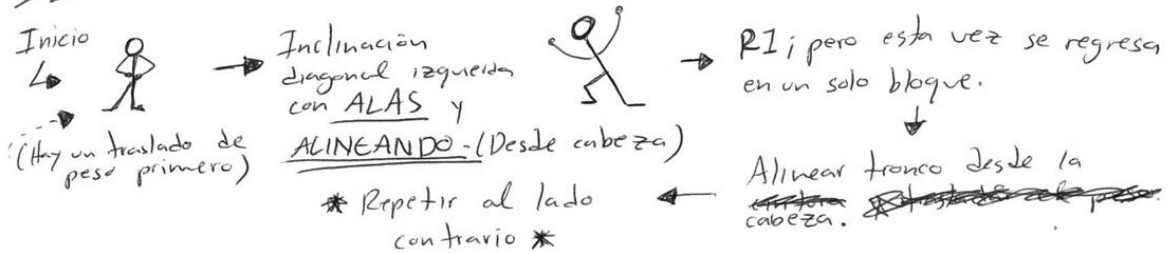 Inicio
(Hay un traslado de
peso primero)
Inclinación
diagonal izquierda
con ALAS y
ALINEANDO - (Desde cabeza)
RI; pero esta vez se regresa
en un solo bloque.
Alinear tronco desde la
cabeza.
* Repetir al lado
contrario *